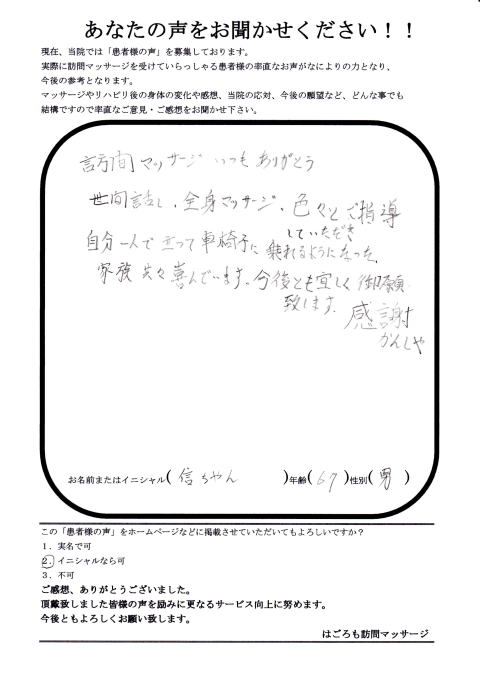 あなたの声をお聞かせください！！
現在、当院では「患者様の声」を募集しております。
実際に訪問マッサージを受けていらっしゃる患者様の率直なお声がなによりの力となり、
今後の参考となります。
マッサージやリハビリ後の身体の変化や感想、当院の応対、今後の願望など、どんな事でも
結構ですので率直なご意見・ご感想をお聞かせ下さい。
訪問マッサージ いつもありがとう
世間話し、全身マッサージ、色々とご指導
していただき
自分一人で立って車椅子に乗れるようになった、
家族共々喜んでいます。今後とも宜しく御願
致します。
感謝
かんしゃ
お名前またはイニシャル(信ちゃん)年齢(67)性別(男)
この「患者様の声」をホームページなどに掲載させていただいてもよろしいですか？
１．実名で可
２．イニシャルなら可
３．不可
ご感想、ありがとうございました。
頂戴致しました皆様の声を励みに更なるサービス向上に努めます。
今後ともよろしくお願い致します。
はごろも訪問マッサージ